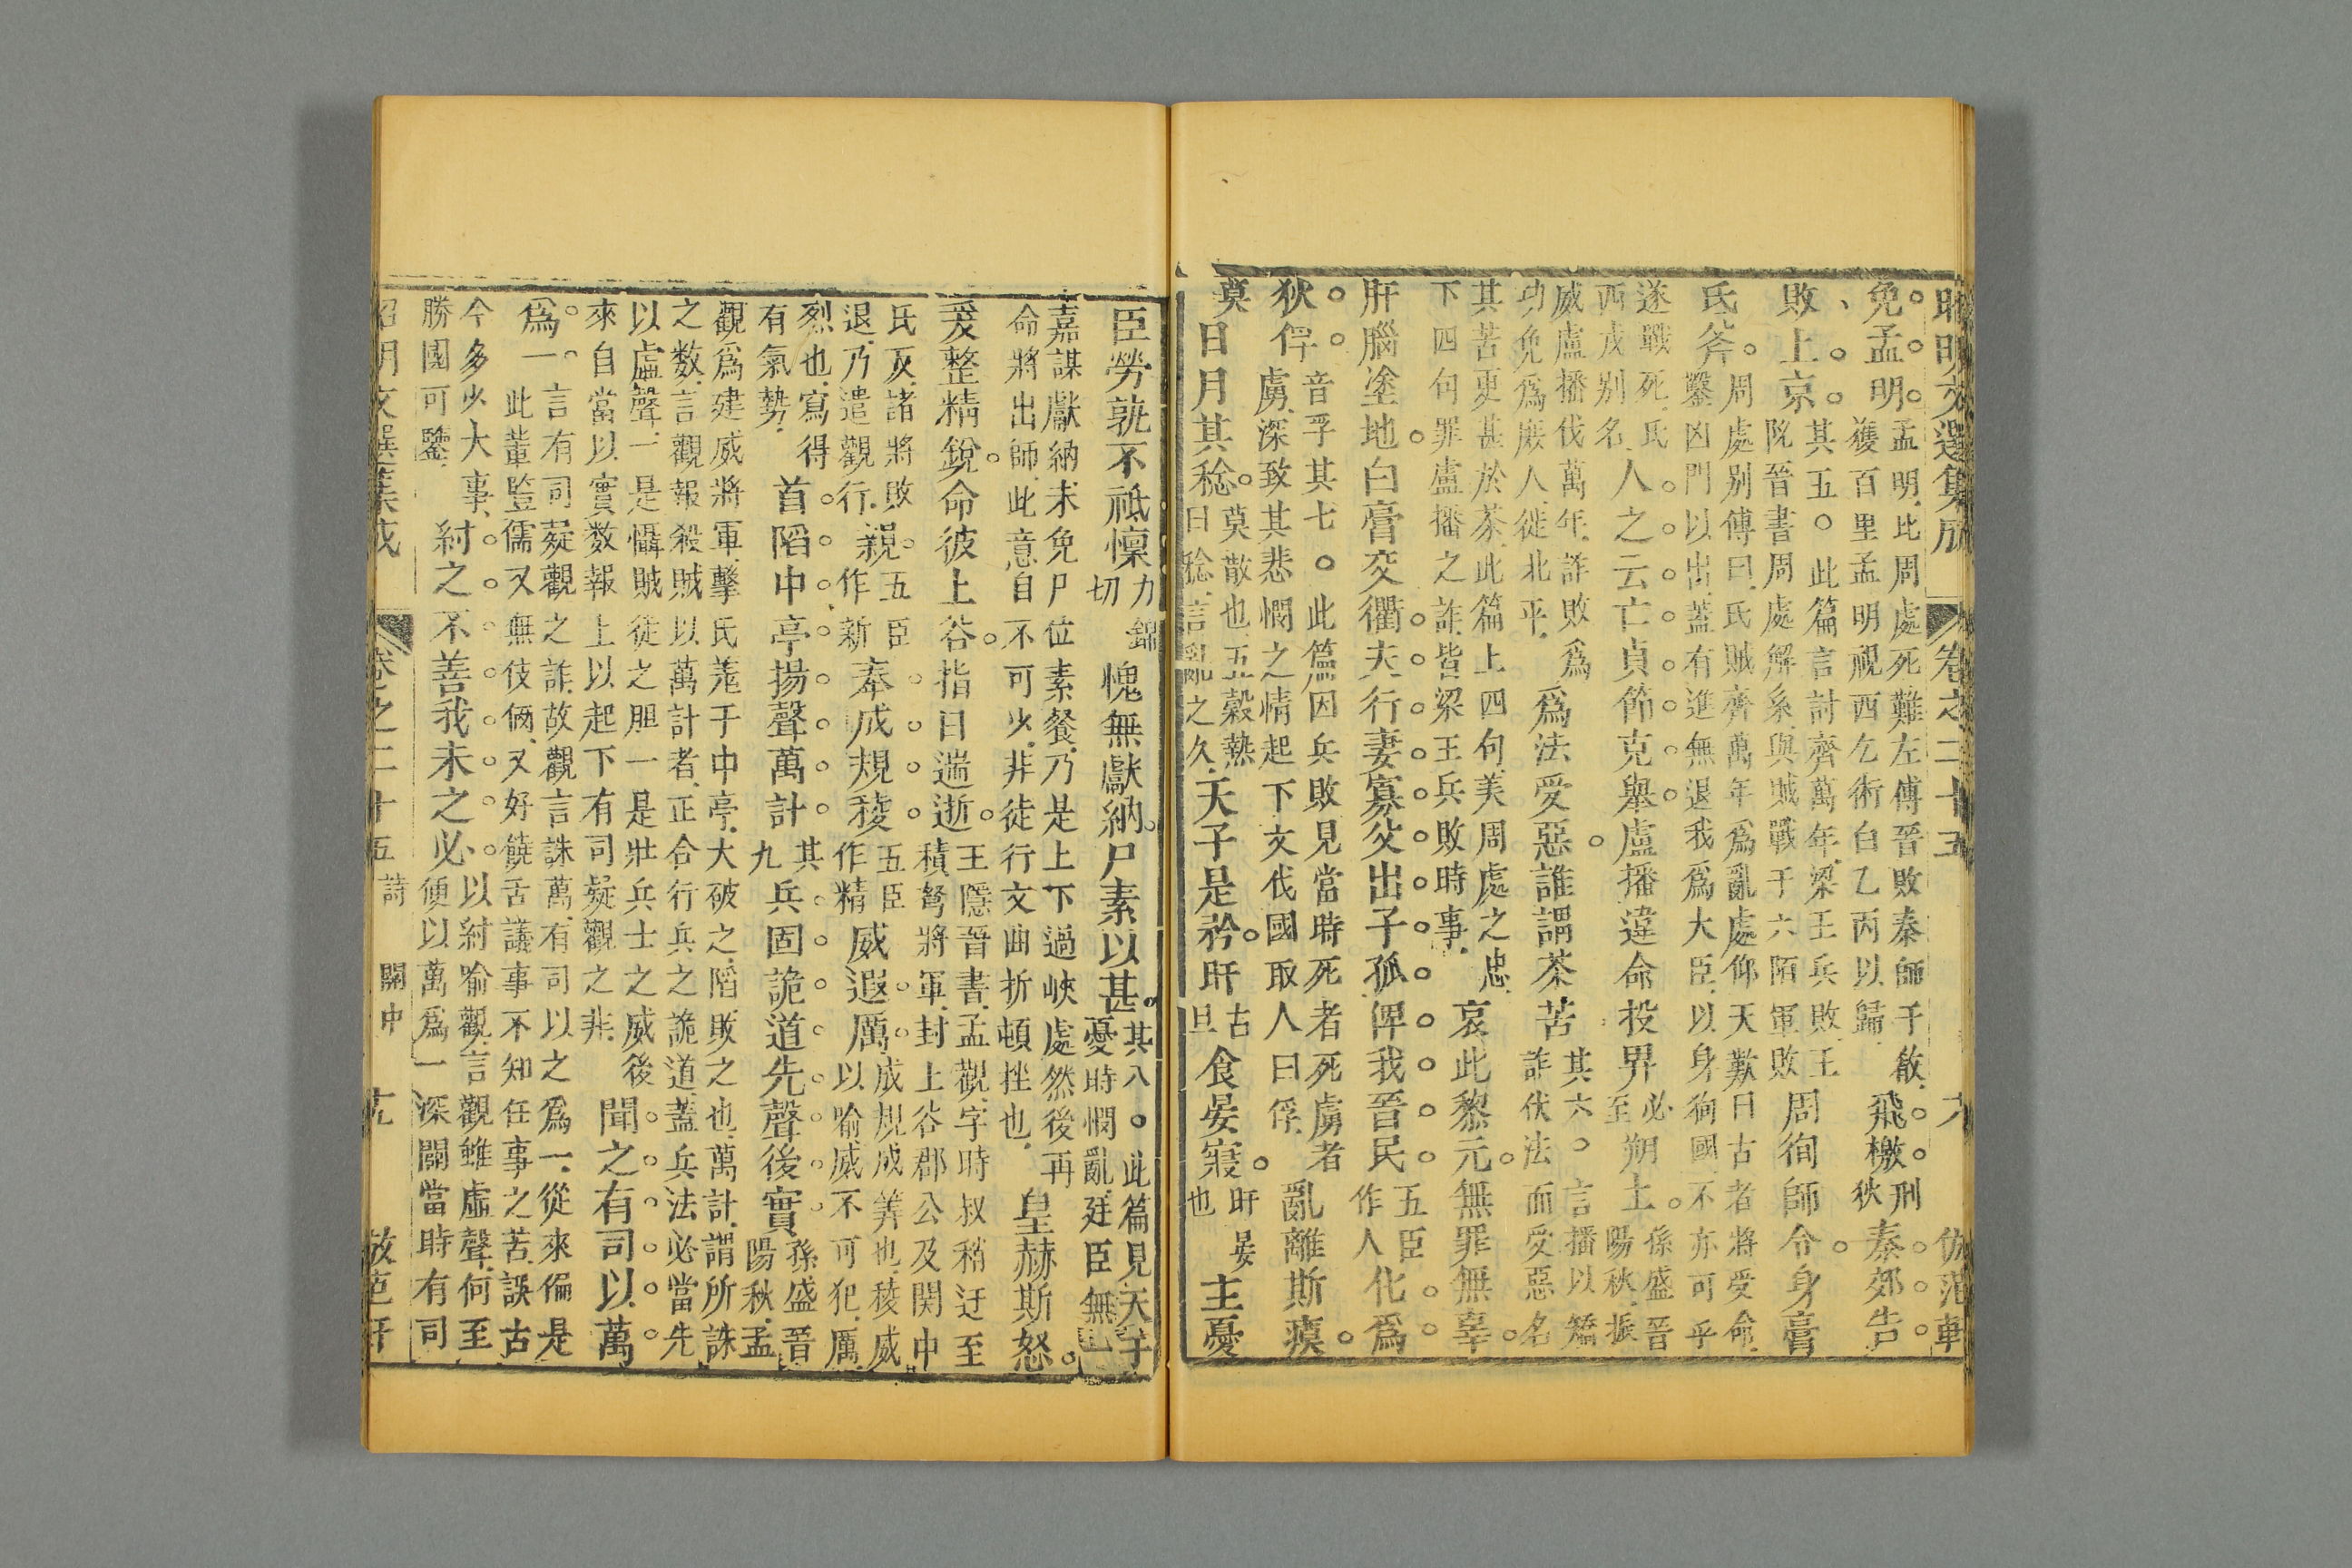 昭明文選集成 卷之二十五 六 倣范軒
免孟明孟明比周處死難左傳晉敗秦師于殽
獲百里孟明視西乞術白乙丙以歸飛檄刑狄秦郊告
敗上京其五。此篇言討齊萬年梁王兵敗王
阮晉書周處解系與賊戰于六陌軍敗周徇師令身膏
氐斧周處別傳曰氐賊齊萬年爲亂處仰天歎曰古者將受命
鑿凶門以出蓋有進無退我爲大臣以身徇國不亦可乎
遂戰死氐
西戎別名人之云亡貞節克舉盧播違命投畀必至朔土孫盛晉
陽秋振
威盧播伐萬年詐敗爲
功免爲庶人徙北平爲法受惡誰謂荼苦其六。言播以矯
詐伏法而受惡名
其苦更甚於荼此篇上四句美周處之忠
下四句罪盧播之詐皆梁王兵敗時事哀此黎元無罪無辜
肝腦塗地白膏交衢夫行妻寡父出子孤俾我晉民五臣作人化爲
狄俘音孚其七。此篇因兵敗見當時死者死虜者
虜深致其悲憫之情起下文伐國取人曰俘亂離斯瘼
莫日月其稔莫散也五穀熟
曰稔言亂之久天子是矜旰古旦食晏寢旰晏也主憂
臣勞孰不祗懍力錦切愧無獻納尸素以甚其八。此篇見天子
憂時憫亂廷臣無一
嘉謀獻納未免尸位素餐乃是上下過峽處然後再
命將出師此意自不可少非徒行文曲折頓挫也皇赫斯怒
爰整精銳命彼上谷指日遄逝王隱晉書孟觀字時叔稍迂至
積弩將軍封上谷郡公及関中
氐反諸將敗
退乃遣觀行親五臣作新奉成規稜五臣作精威遐厲成規成筭也稜威
以喻威不可犯厲
烈也寫得
有氣勢首陷中亭揚聲萬計其九兵固詭道先聲後實孫盛晉
陽秋孟
觀爲建威將軍擊氐羌于中亭大破之陷敗之也萬計謂所誅
之数言觀報殺賊以萬計者正合行兵之詭道蓋兵法必當先
以虛聲一是懾賊徒之胆一是壯兵士之威後
來自當以實数報上以起下有司疑觀之非聞之有司以萬
爲一言有司疑觀之詐故觀言誅萬有司以之爲一從來偏是
此輩監儒又無伎倆又好饒舌議事不知任事之苦誤古
今多少大事
勝國可鑒紂之不善我未之必以紂喻觀言觀雖虛聲何至
便以萬爲一深闢當時有司
昭明文選集成 卷之二十五 詩 關中